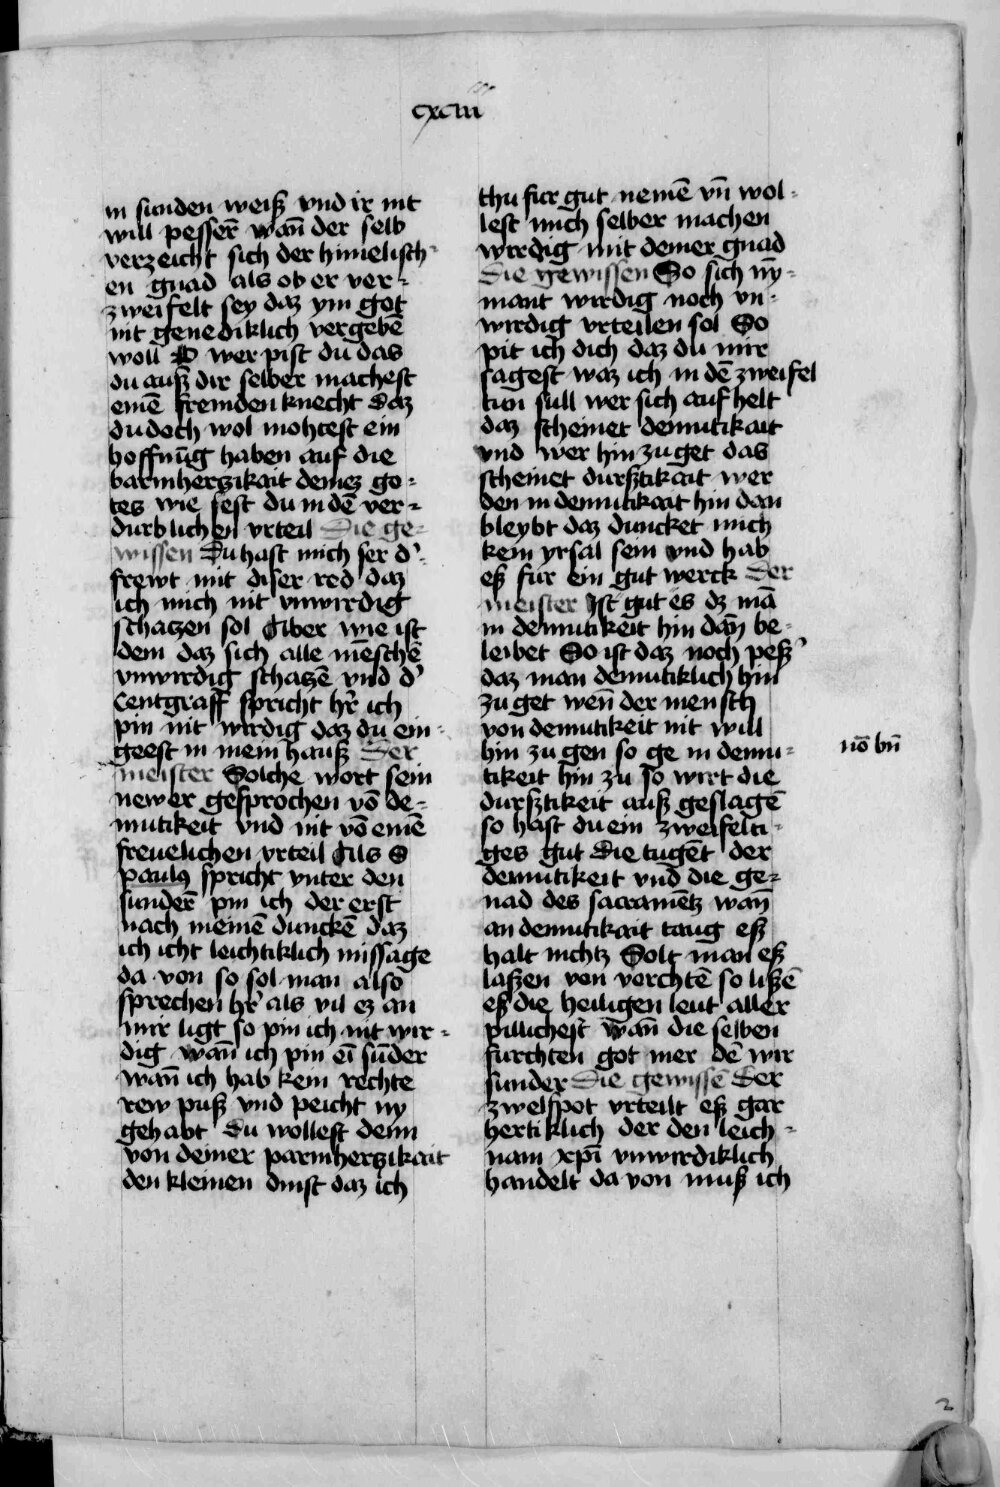 cxciii
in sunden weiß vnd ir nit
will pesserē wan̄ der selb
verzeicht sich der himelisch-
en gnad als ob er ver-
zweifelt sey daz ym got
nit genediklich vergebē
woll O wer pist du das
du auß dir selber machest
einē fremden knecht Daz
du doch wol mohtest ein
hoffnūg haben auf die
barmhertzikait deinez go-
tes wie fest du in dē ver-
durblichen vrteil Die ge-
wissen Du hast mich ser d'-
frewt mit diser red daz
ich mich nit vnwirdig
schatzen sol Aber wie ist
dem daz sich alle mēschē
vnwirdig schatzē vnd d'
Centgraff spricht hr̄ ich
pin nit wirdig daz du ein-
geest in mein hauß Der
meister Solche wort sein
newer gesprochen vō de-
mutikeit vnd nit vō einē
freuelichen vrteil Als S
paulꝰ spricht vnter den
sunderē pin ich der erst
nach meinē dunckē daz
ich icht leichtiklich missage
da von so sol man also
sprechen hr̄ als vil ez an
mir ligt so pin ich nit wir-
dig wan̄ ich pin eī sūder
wan̄ ich hab kein rechte
rew puß vnd peicht ny
gehabt Du wollest denn
von deiner parmhertzikait
den kleinen dinst daz ich
thu fur gut nemē vn̄ wol-
lest mich selber machen
wirdig mit deiner gnad
Die gewissen So sich ny-
mant wirdig noch vn-
wirdig vrteilen sol So
pit ich dich daz du mir
sagest waz ich in dē zweifel
tun sull wer sich auf helt
daz scheinet demutikait
vnd wer hin zu get das
scheinet durstikait wer
den in demutikait hin dan
bleybt daz duncket mich
kein yrsal sein vnd hab
eß fur ein gut werck Der
meister Ist gut es dz mā
in demutikeit hin dan̄ be-
leibet So ist daz noch peß'
daz man demutiklich hin
zu get wen̄ der mensch
von demutikeit nit will
hin zu gen so ge in demu-
tikeit hin zu so wirt die
durstikeit auß geslagē
so hast du ein zweifelti-
ges gut Die tugēt der
demutikeit vnd die ge-
nad des sacramētz wan̄
an demutikait taug eß
halt nichtz Solt man eß
laßen von vorchtē so lißē
eß die heiligen leut aller
pillichest wan̄ die selben
furchten got mer dē wir
sunder Die gewissē Der
zwelfpot vrteilt eß gar
hertiklich der den leich-
nam xpī vnwirdiklich
handelt da von muß ich
nō bn̄
2